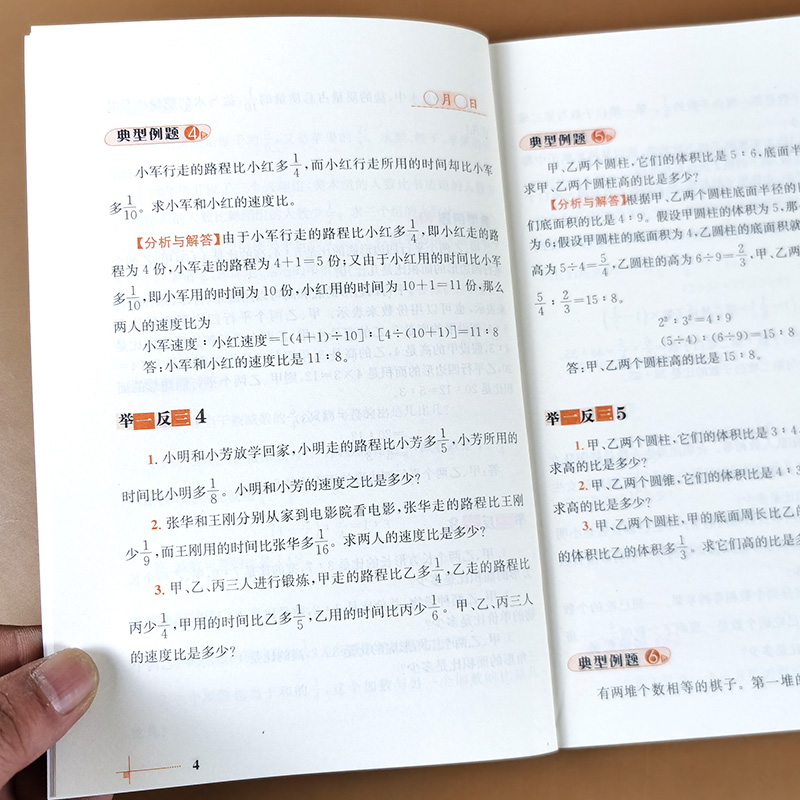 ○月○日
典型例题4
小军行走的路程比小红多1/4,而小红行走所用的时间却比小军
多1/10。求小军和小红的速度比。
【分析与解答】由于小军行走的路程比小红多1/4,即小红走的路
程为4份,小军走的路程为4+1=5份;又由于小红用的时间比小军
多1/10,即小军用的时间为10份,小红用的时间为10+1=11份,那么
两人的速度比为
小军速度∶小红速度=[(4+1)÷10]∶[4÷(10+1)]=11∶8
答:小军和小红的速度比是11∶8。
举一反三4
1. 小明和小芳放学回家,小明走的路程比小芳多1/5,小芳所用的
时间比小明多1/8。小明和小芳的速度之比是多少?
2. 张华和王刚分别从家到电影院看电影,张华走的路程比王刚
少1/9,而王刚用的时间比张华多1/16。求两人的速度比是多少?
3. 甲、乙、丙三人进行锻炼,甲走的路程比乙多1/4,乙走的路程比
丙少1/4,甲用的时间比乙多1/5,乙用的时间比丙少1/6。甲、乙、丙三人
的速度比是多少?
4
典型例题5
甲、乙两个圆柱,它们的体积比是5∶6,底面半
求甲、乙两个圆柱高的比是多少?
【分析与解答】根据甲、乙两个圆柱底面半径的
们底面积的比是4∶9。假设甲圆柱的体积为5,那
为6;假设甲圆柱的底面积为4,乙圆柱的底面积就
高为5÷4=5/4,乙圆柱的高为6÷9=2/3,甲、乙两
5/4∶2/3=15∶8。
2²∶3²=4∶9
(5÷4)∶(6÷9)=15∶8
答:甲、乙两个圆柱高的比是15∶8。
举一反三5
1. 甲、乙两个圆柱,它们的体积比是3∶4
求高的比是多少?
2. 甲、乙两个圆锥,它们的体积比是4∶3
求高的比是多少?
3. 甲、乙两个圆柱,甲的底面周长比乙的
的体积比乙的体积多1/3。求它们高的比是多
典型例题6
有两堆个数相等的棋子。第一堆的